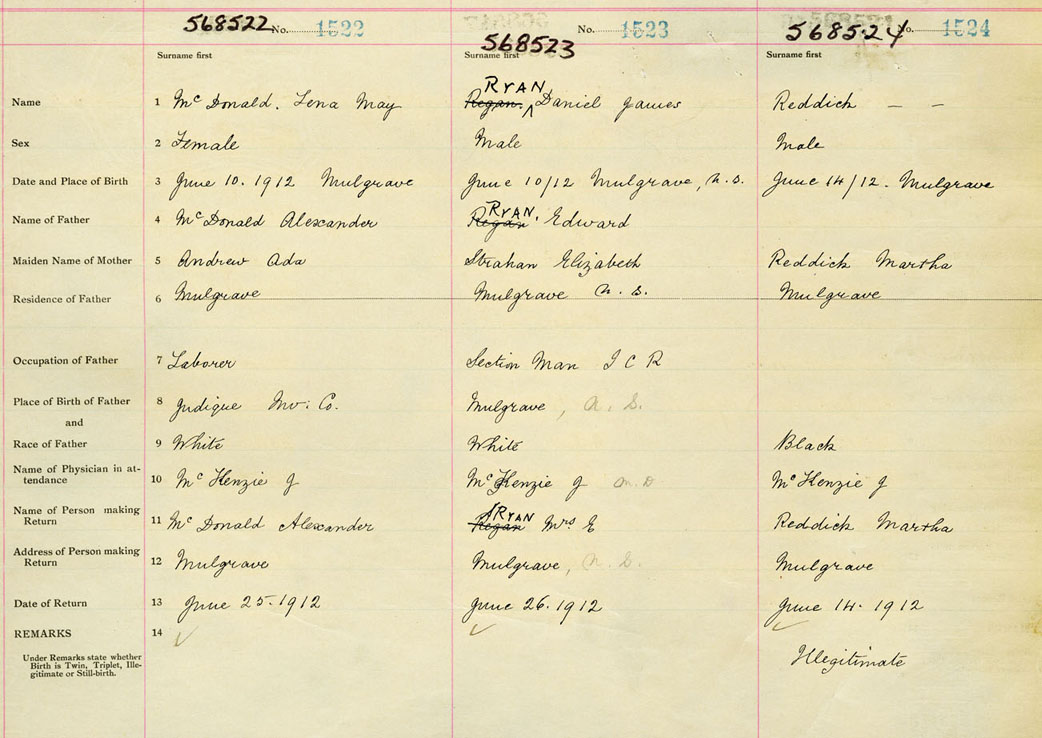 568522 No. 1522 568523 No. 1523 568524 No. 1524
Surname first Surname first Surname first
Name 1 Mc Donald. Lena May Regan. RYAN Daniel James Reddick — —
Sex 2 Female Male Male
Date and Place of Birth 3 June 10. 1912 Mulgrave June 10/12 Mulgrave, N. S. June 14/12. Mulgrave
Name of Father 4 Mc Donald Alexander Regan RYAN. Edward
Maiden Name of Mother 5 Andrew Ada Strahan Elizabeth Reddick Martha
Residence of Father 6 Mulgrave Mulgrave N. S. Mulgrave
Occupation of Father 7 Laborer Section Man I C R
Place of Birth of Father 8 Judique Inv: Co. Mulgrave, N. S.
and
Race of Father 9 White White Black
Name of Physician in at-
tendance 10 Mc Kenzie J Mc Kenzie J M.D Mc Kenzie J
Name of Person making
Return 11 Mc Donald Alexander Regan RYAN Mrs E Reddick Martha
Address of Person making
Return 12 Mulgrave Mulgrave, N. S. Mulgrave
Date of Return 13 June 25. 1912 June 26. 1912 June 14. 1912
REMARKS 14
Under Remarks state whether
Birth is Twin, Triplet, Ille-
gitimate or Still-birth.
Illegitimate